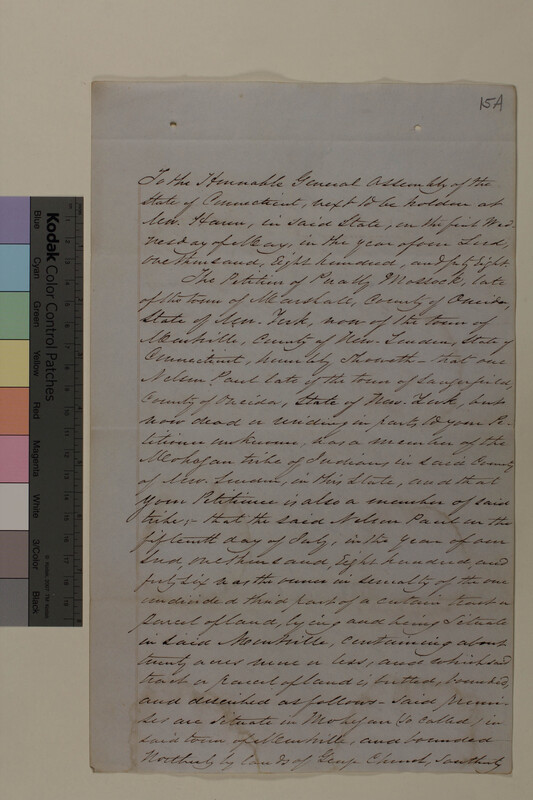 15A
To the Honourable General Assembly of the
State of Connecticut, next to be holden at
New. Haven, in said State, on the first Wed
nesday of May, in the year of our Lord,
one thousand, Eight hundred, and forty Eight
The Petition of Pually Mossock, late
of the town of Marshall, County of Oneida,
State of New. York, now of the town of
Montville, County of New. London, State of
Connecticut, humbly Sheweth - that one
Nelson Paul late of the town of Sangerfield,
County of Oneida, State of New. York, but
now dead or residing in parts to your Pe-
titioner unknown, was a member of the
Mohegan tribe of Indians in said County
of New. London, in this State, and that
your Petitioner is also a member of said
tribe; - that the said Nelson Paul on the
fifteenth day of July, in the year of our
Lord, one thousand, Eight hundred, and
forty six was the owner in severalty of the one
undivided third part of a certain tract or
parcel of land, lying and being Situate
in said Montville, containing about
twenty acres more or less, and which said
tract or parcel of land is butted, bounded,
and described as follows - Said premi-
ses are Situate in Mohegan (so called) in
said town of Montville, and bounded
Northerly by lands of George Church, Southerly
Kodak Color Control Patches
Blue
Cyan
Green
Yellow
Red
Magenta
White
3/Color
Black